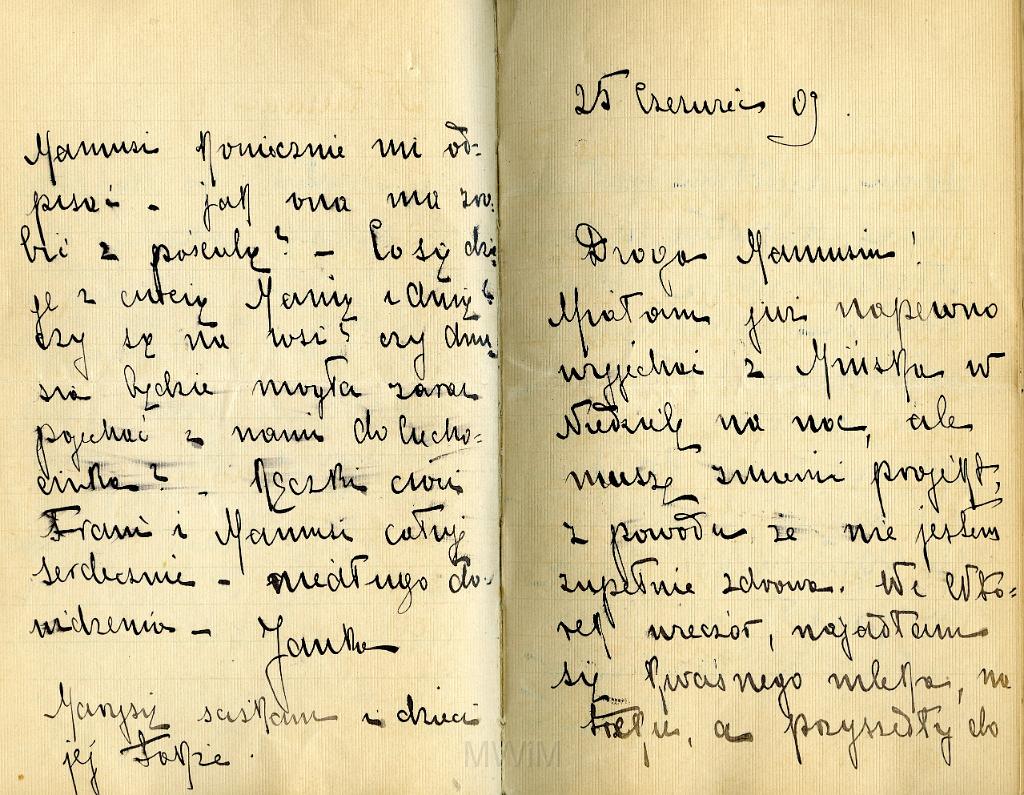 Mamusi koniecznie mi od=
pisać - jak ona ma zro=
bić z pościelą? - Co się dzi=
je z ciocią Manią i
czy są na wsi? czy
sia będzie mogła zaraz
pojechać z nami do Lucho=
cinka? - Rączki cioci
Frani i Mamusi całuję
serdecznie - niedługo do=
widzenia - Janka
Marysię ściskam i dzieci
jej także.
25 Czerwiec 09.
Droga Mamusiu!
Miałam już napewno
wyjechać z Mińska w
Niedzielę na noc, ale
muszę zmienić projekt,
z powodu że nie jestem
zupełnie zdrowa. We Wto=
rek wieczór, najadłam
się kwaśnego mleka, na
a przyszedłszy do
MWiM